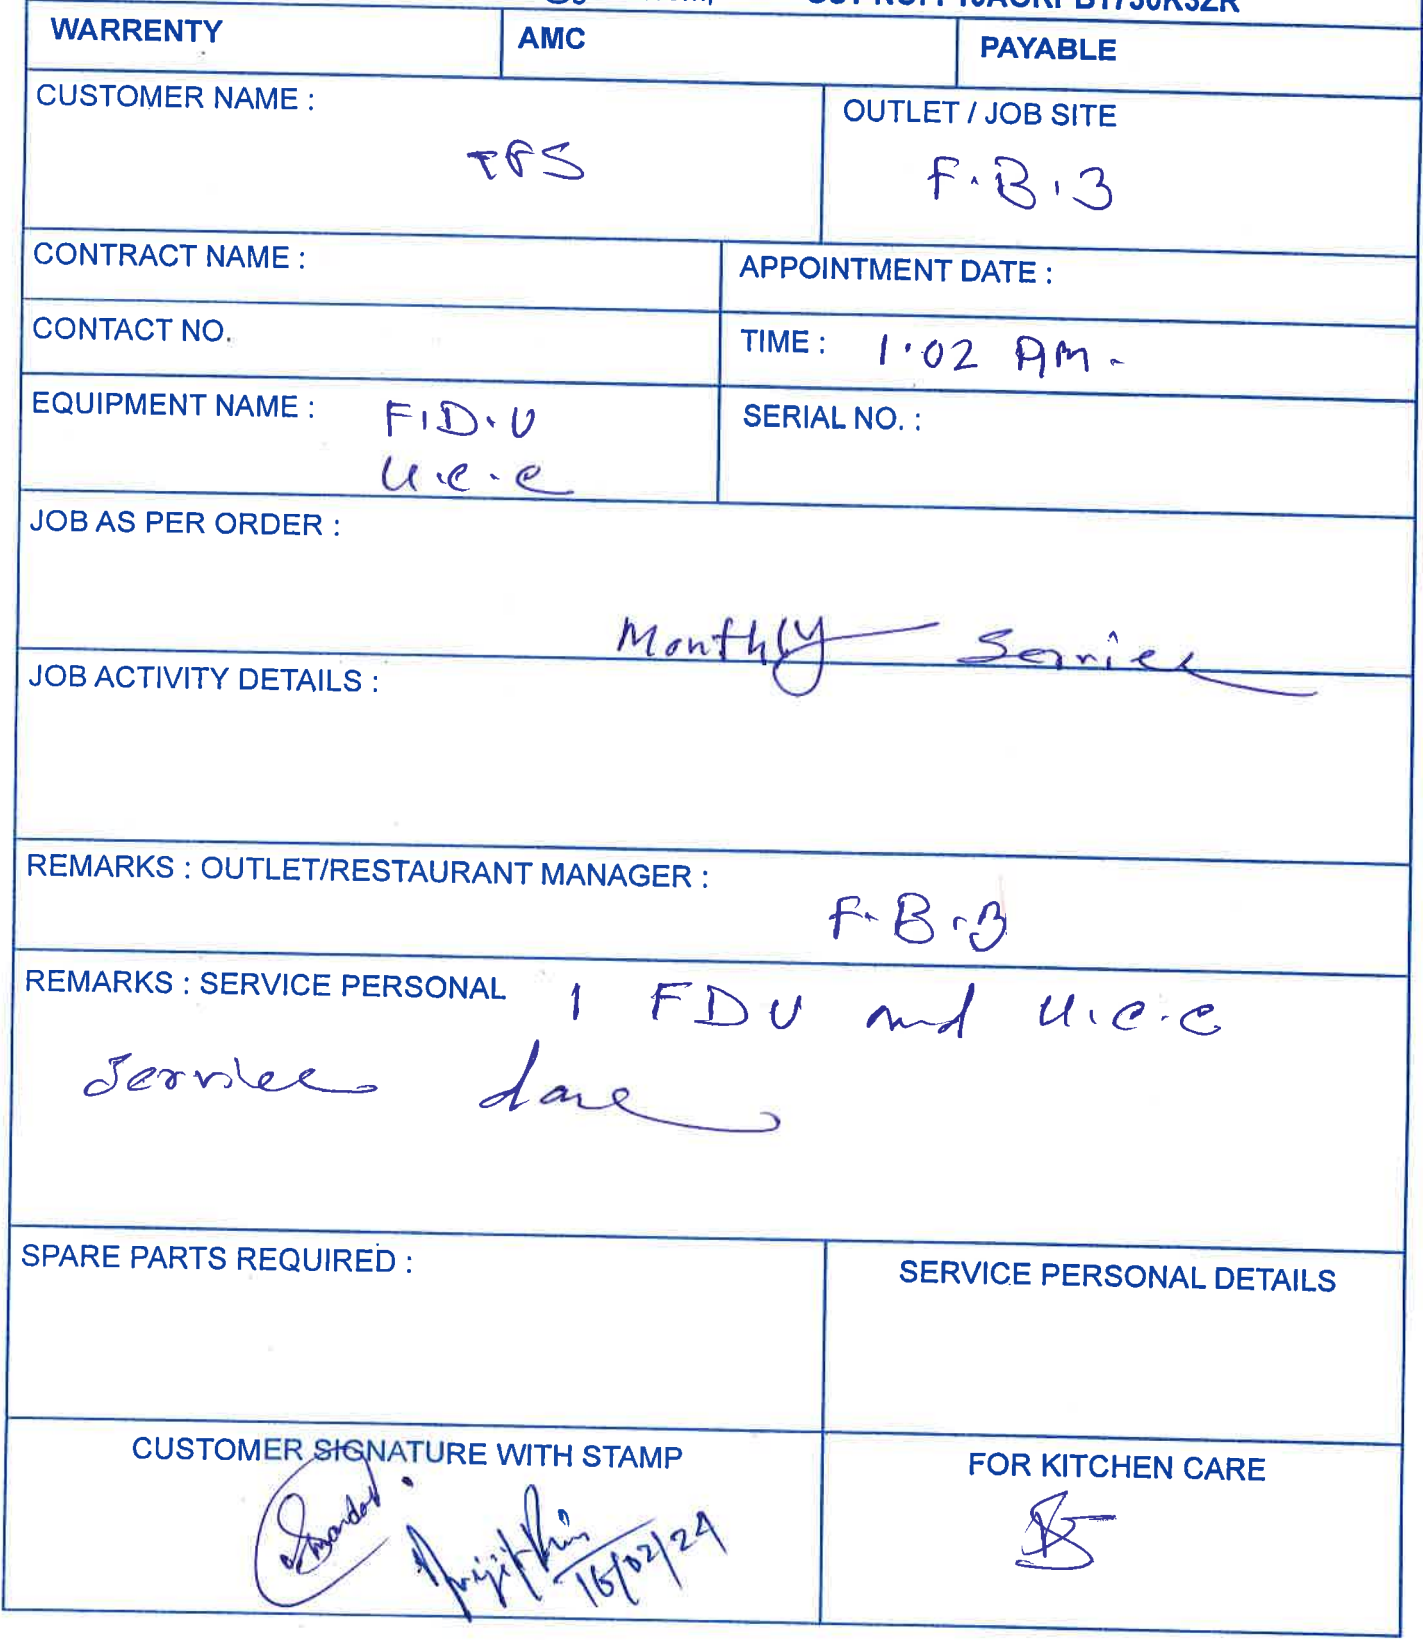 WARRENTY
AMC
PAYABLE
CUSTOMER NAME :
TFS
OUTLET / JOB SITE
F.B.3
CONTRACT NAME :
APPOINTMENT DATE :
CONTACT NO.
TIME : 1.02 AM.
EQUIPMENT NAME : F.D.U
U.C.C
SERIAL NO. :
JOB AS PER ORDER :
Monthly Service
JOB ACTIVITY DETAILS :
REMARKS : OUTLET/RESTAURANT MANAGER :
F.B.3
REMARKS : SERVICE PERSONAL 1 FDU and U.C.C
Service done
SPARE PARTS REQUIRED :
SERVICE PERSONAL DETAILS
CUSTOMER SIGNATURE WITH STAMP
16/02/24
FOR KITCHEN CARE